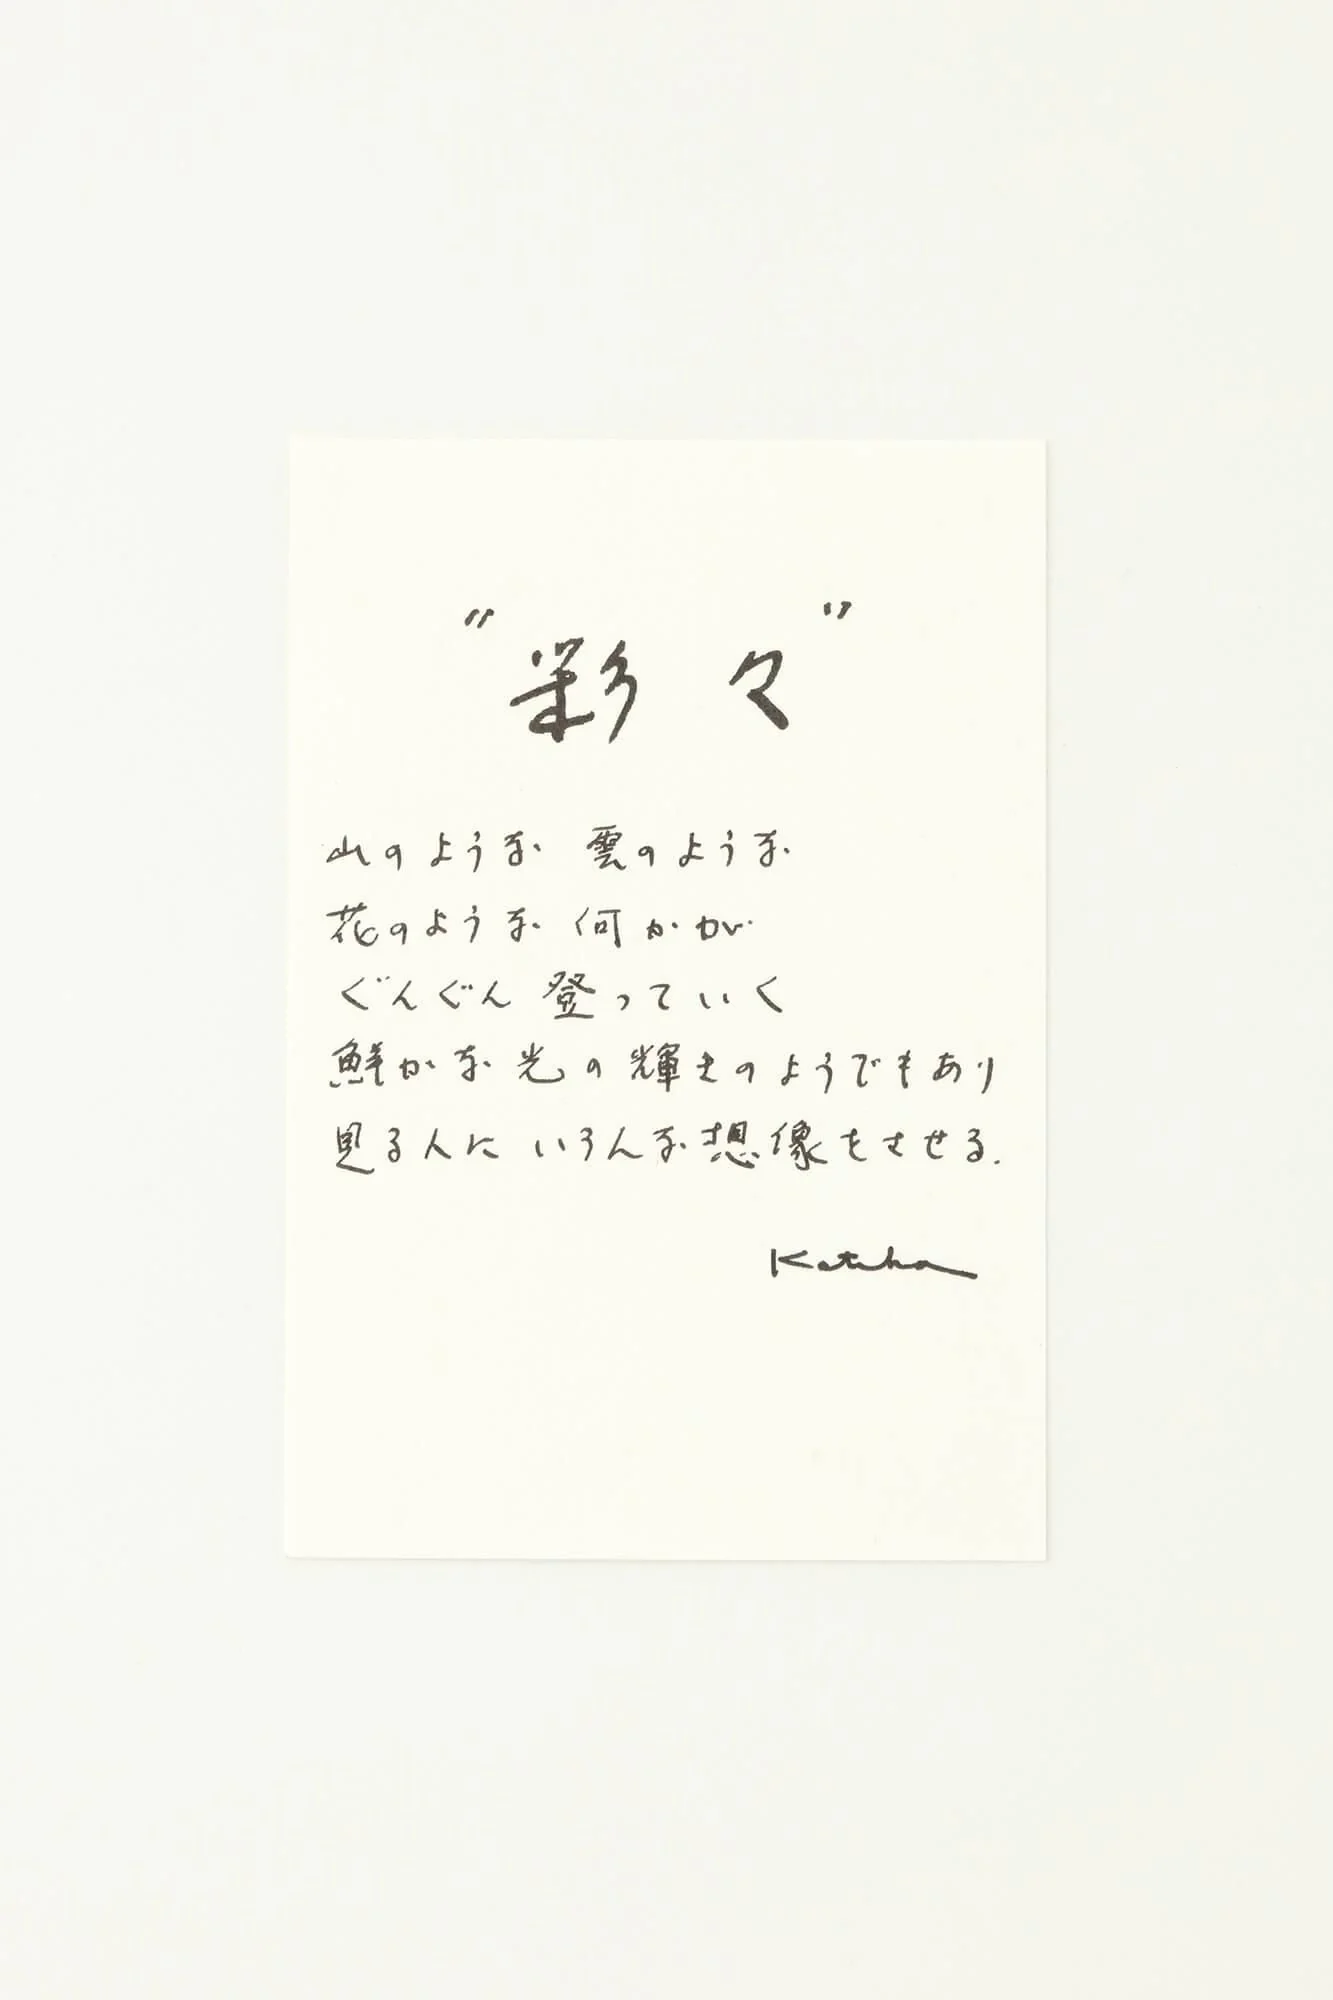 "彩々"
山のような 雲のような
花のような 何かが
ぐんぐん 登っていく
鮮かな 光の 輝きのようでもあり
見る人に いろんな想像をさせる.